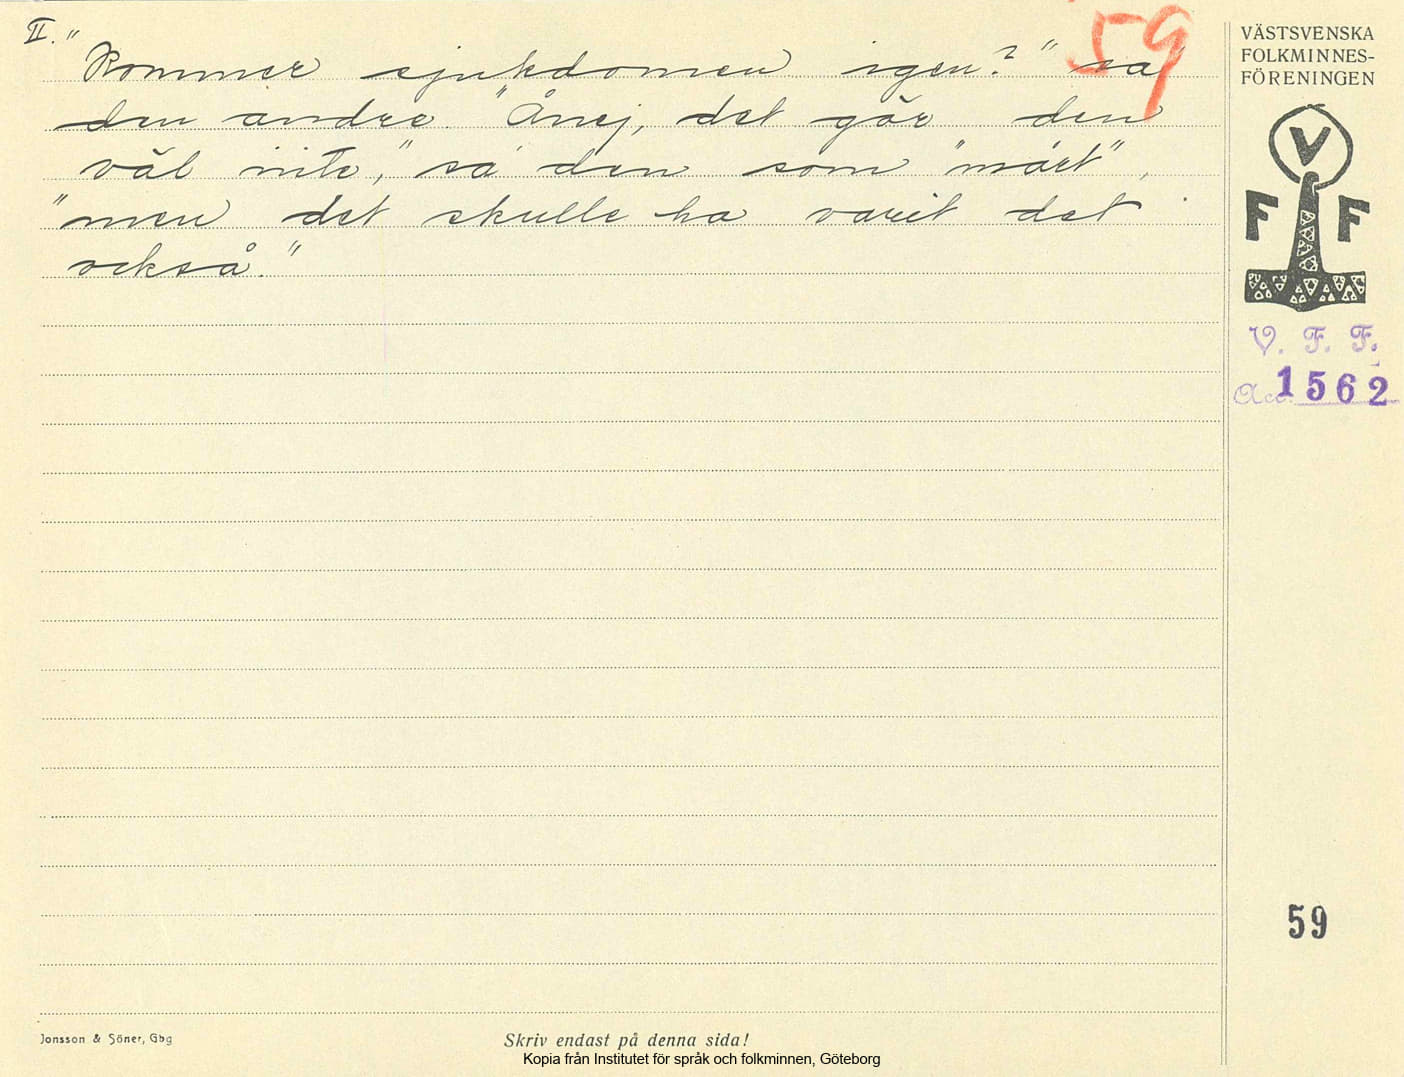 II. "Kommer sjukdomen igen?" sa
den andre. "Ånej, det gör den
väl inte," sa den som "mårt",
"men det skulle ha varit det
också."
59
VÄSTSVENSKA
FOLKMINNES-
FÖRENINGEN
V
F F
V. F. F.
Acc. 1562
59
Jonsson & Söner, Gbg
Skriv endast på denna sida!
Kopia från Institutet för språk och folkminnen, Göteborg